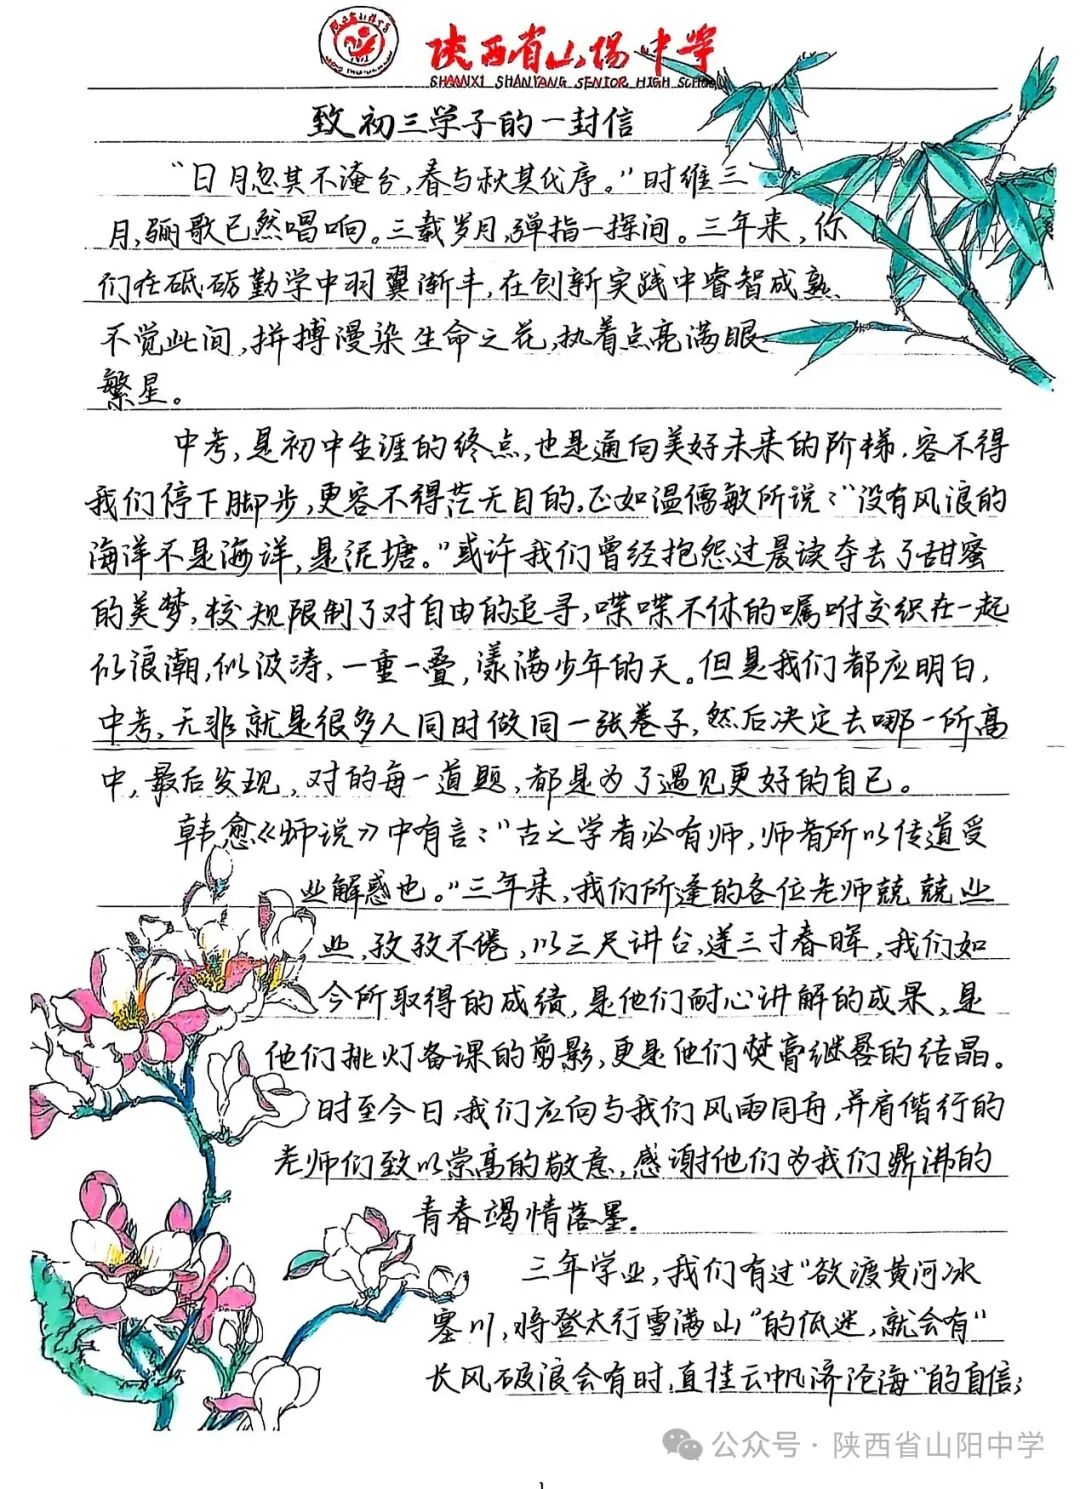 陕西省山阳中学
SHANXI SHANYANG SENIOR HIGH SCHOOL
致初三学子的一封信
“日月忽其不淹兮，春与秋其代序。”时维三
月，骊歌已然唱响。三载岁月，弹指一挥间。三年来，你
们在砥砺勤学中羽翼渐丰，在创新实践中睿智成熟、
不觉此间，拼搏漫染生命之花，执着点亮满眼
繁星。
中考，是初中生涯的终点，也是通向美好未来的阶梯，容不得
我们停下脚步，更容不得茫无目的。正如温儒敏所说：“没有风浪的
海洋不是海洋，是泥塘。”或许我们曾经抱怨过晨读夺去了甜蜜
的美梦，校规限制了对自由的追寻，喋喋不休的嘱咐交织在一起
似浪潮，似波涛，一重一叠，漾满少年的天。但是我们都应明白，
中考，无非就是很多人同时做同一张卷子，然后决定去哪一所高
中，最后发现，对的每一道题，都是为了遇见更好的自己。
韩愈《师说》中有言：“古之学者必有师，师者所以传道受
业解惑也。”三年来，我们所逢的各位老师兢兢业
业，孜孜不倦，以三尺讲台，遂三寸春晖，我们如
今所取得的成绩，是他们耐心讲解的成果，是
他们挑灯备课的剪影，更是他们焚膏继晷的结晶。
时至今日，我们应向与我们风雨同舟，并肩偕行的
老师们致以崇高的敬意，感谢他们为我们鼎沸的
青春竭情落墨。
三年学业，我们有过“欲渡黄河冰
塞川，将登太行雪满山”的低迷，就会有“
长风破浪会有时，直挂云帆济沧海”的自信；
公众号·陕西省山阳中学
1